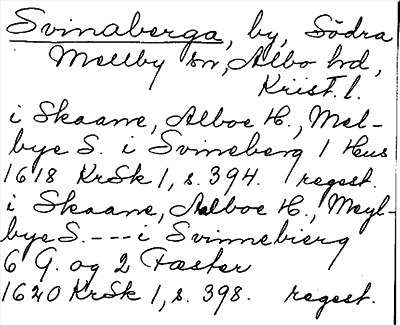 Svinaberga, by, Södra
Mellby sn, Albo hd,
Krist. l.
i Skaane, Alboe H., Mel-
bye S. i Svineberg 1 Hus
1618 KrSk 1, s. 394. regest.
i Skaane, Alboe H., Meyl-
bye S. --- i Svinnebierg
6 G. og 2 Fæster
1620 KrSk 1, s. 398. regest.